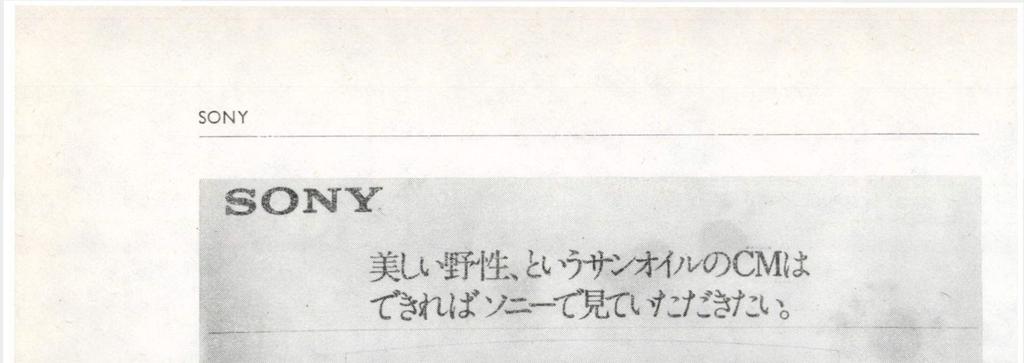 SONY
SONY
美しい野性、というサンオイルのCMは
できればソニーで見ていただきたい。